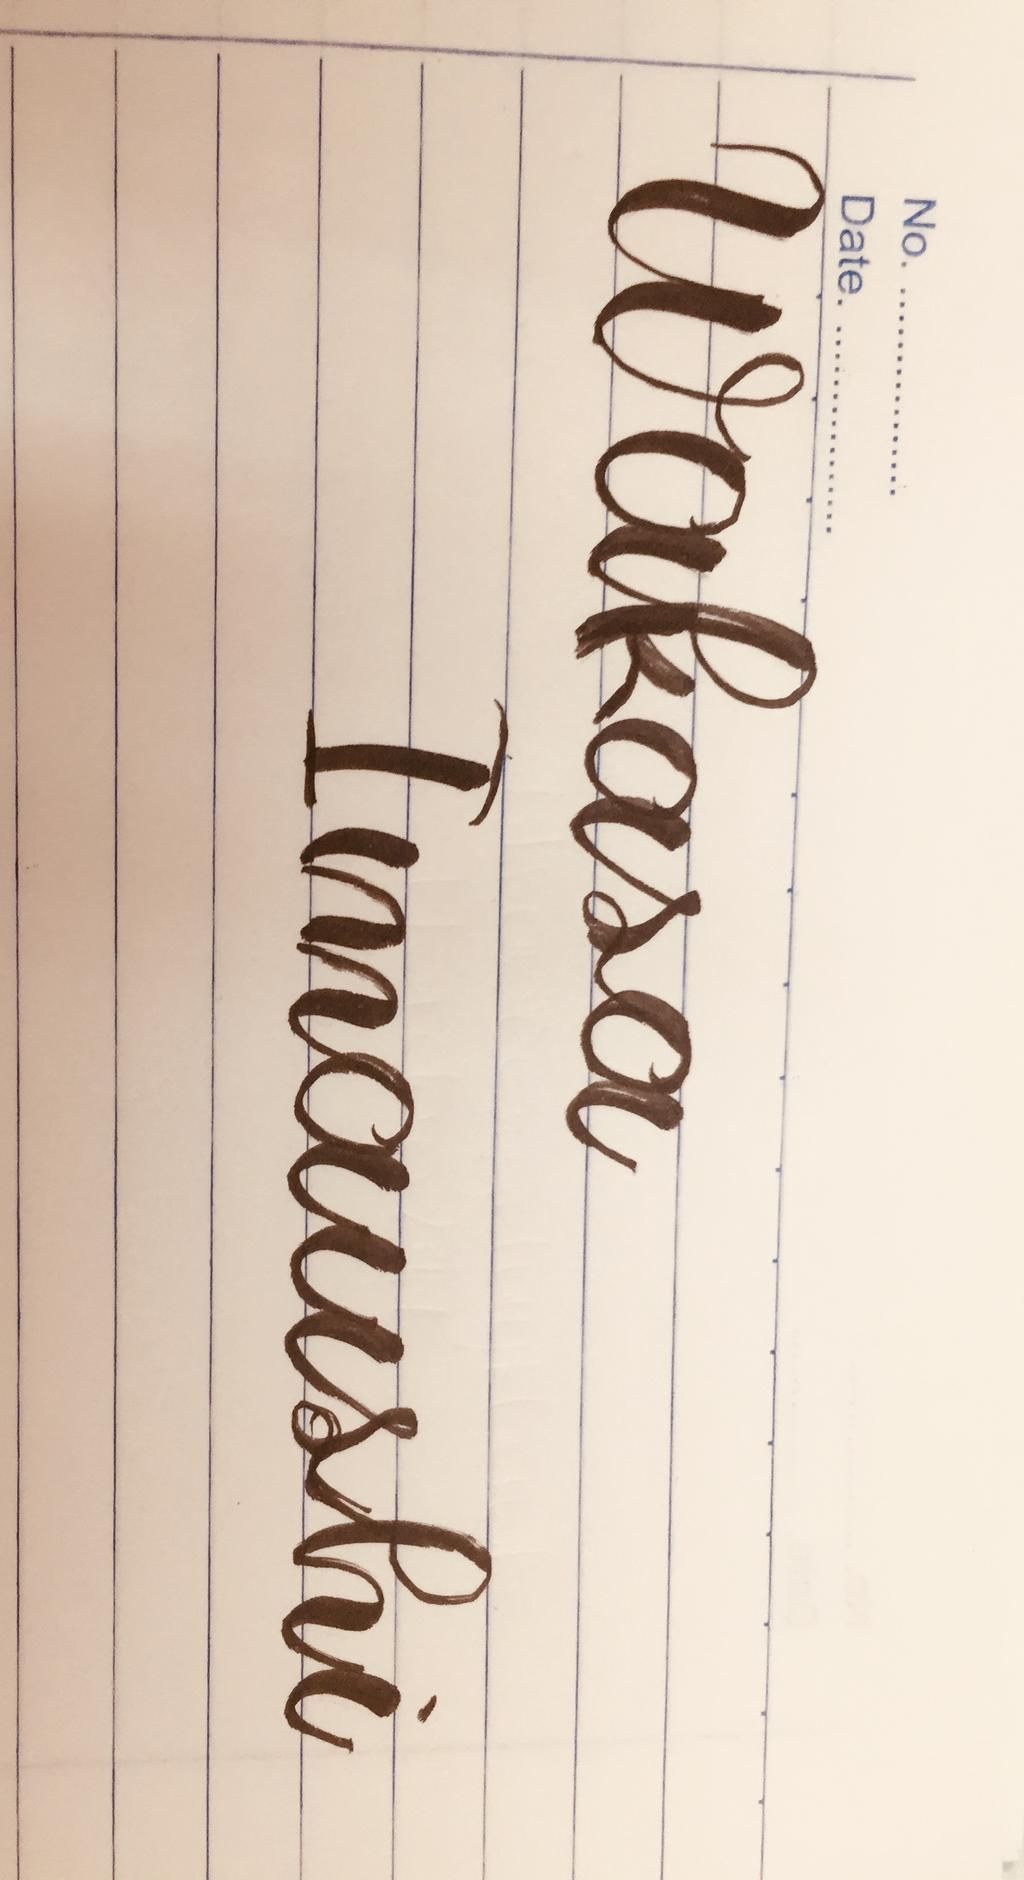 No. ....................
Date. ....................
Wakasa
Imaushi